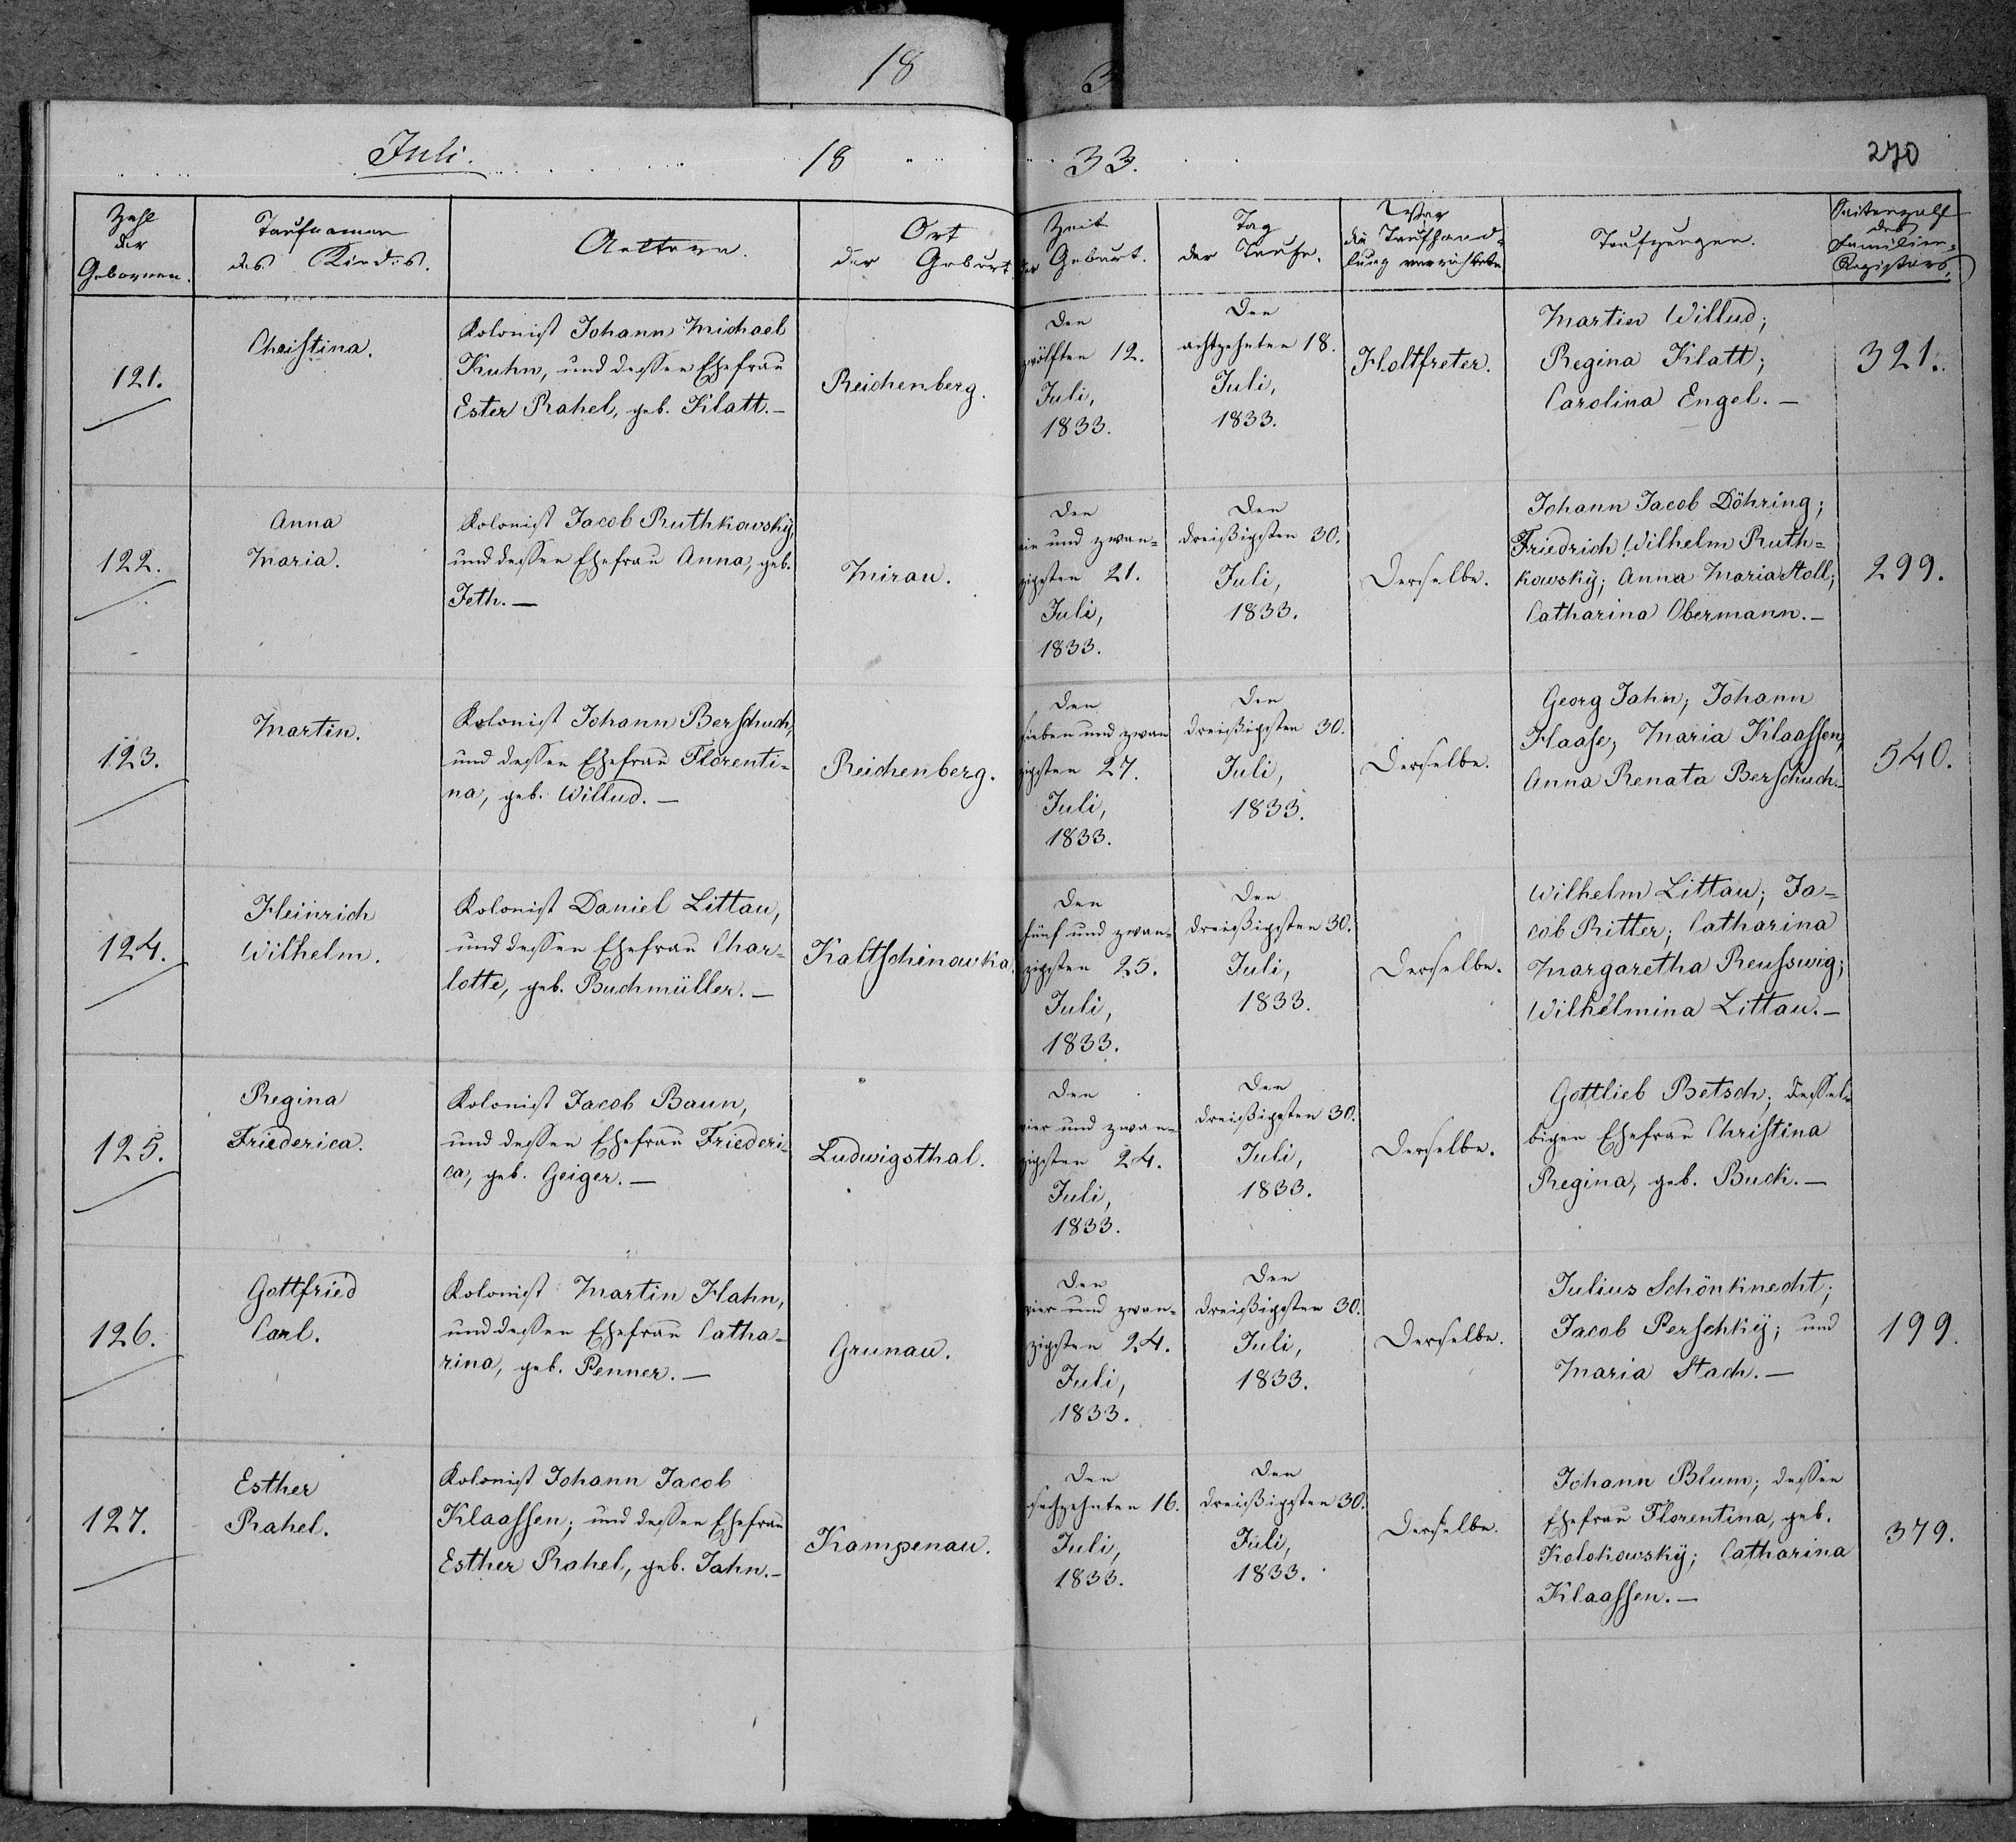 18 3
Juli. 18 33. 270
Zahl
der
Gebornen.
Taufnamen
des Kindes.
Aeltern.
Ort
der Geburt.
Zeit
der Geburt.
Tag
der Taufe.
Wer
die Taufhand-
lung verrichtete
Taufzeugen.
Seitenzahl
des
Familien-
Registers.
121.
Christina.
Kolonist Johann Michael
Kuhn, und dessen Ehefrau
Ester Rahel, geb. Klatt.—
Reichenberg.
Den
zwölften 12.
Juli,
1833.
Den
achtzehnten 18.
Juli,
1833.
Holtfreter.
Martin Willud;
Regina Klatt;
Carolina Engel.—
321.
122.
Anna
Maria.
Kolonist Jacob Ruthkowsky,
und dessen Ehefrau Anna, geb.
Jeth.—
Mirau.
Den
ein und zwan-
zigsten 21.
Juli,
1833.
Den
dreißigsten 30.
Juli,
1833.
Derselbe.
Johann Jacob Döhring;
Friedrich Wilhelm Ruth-
kowsky; Anna Maria Stoll;
Catharina Obermann.—
299.
123.
Martin.
Kolonist Johann Berschuch,
und dessen Ehefrau Florenti-
na, geb. Willud.—
Reichenberg.
Den
sieben und zwan
zigsten 27.
Juli,
1833.
Den
dreißigsten 30.
Juli,
1833.
Derselbe.
Georg Jahn; Johann
Haase; Maria Klaassen,
Anna Renata Berschuch.—
540.
124.
Heinrich
Wilhelm.
Kolonist Daniel Littau,
und dessen Ehefrau Char-
lotte, geb. Buchmüller.—
Kaltschinowka.
Den
fünf und zwan-
zigsten 25.
Juli,
1833.
Den
dreißigsten 30.
Juli,
1833.
Derselbe.
Wilhelm Littau; Ja-
cob Ritter; Catharina
Margaretha Reusswig;
Wilhelmina Littau.—
125.
Regina
Friederica.
Kolonist Jacob Baun,
und dessen Ehefrau Friederi-
ca, geb. Geiger.—
Ludwigsthal.
Den
vier und zwan-
zigsten 24.
Juli,
1833.
Den
dreißigsten 30.
Juli,
1833.
Derselbe.
Gottlieb Betsch; dessel-
bigen Ehefrau Christina
Regina, geb. Buck.—
126.
Gottfried
Carl.
Kolonist Martin Hahn,
und dessen Ehefrau Catha-
rina, geb. Penner.—
Grunau.
Den
vier und zwan-
zigsten 24.
Juli,
1833.
Den
dreißigsten 30.
Juli,
1833.
Derselbe.
Julius Schönknecht;
Jacob Perschky; und
Maria Stach.—
199.
127.
Esther
Rahel.
Kolonist Johann Jacob
Klaassen; und dessen Ehefrau
Esther Rahel, geb. Jahn.—
Kampenau.
Den
sechzehnten 16.
Juli,
1833.
Den
dreißigsten 30.
Juli,
1833.
Derselbe.
Johann Blum; dessen
Ehefrau Florentina, geb.
Kolokowsky; Catharina
Klaassen.—
379.